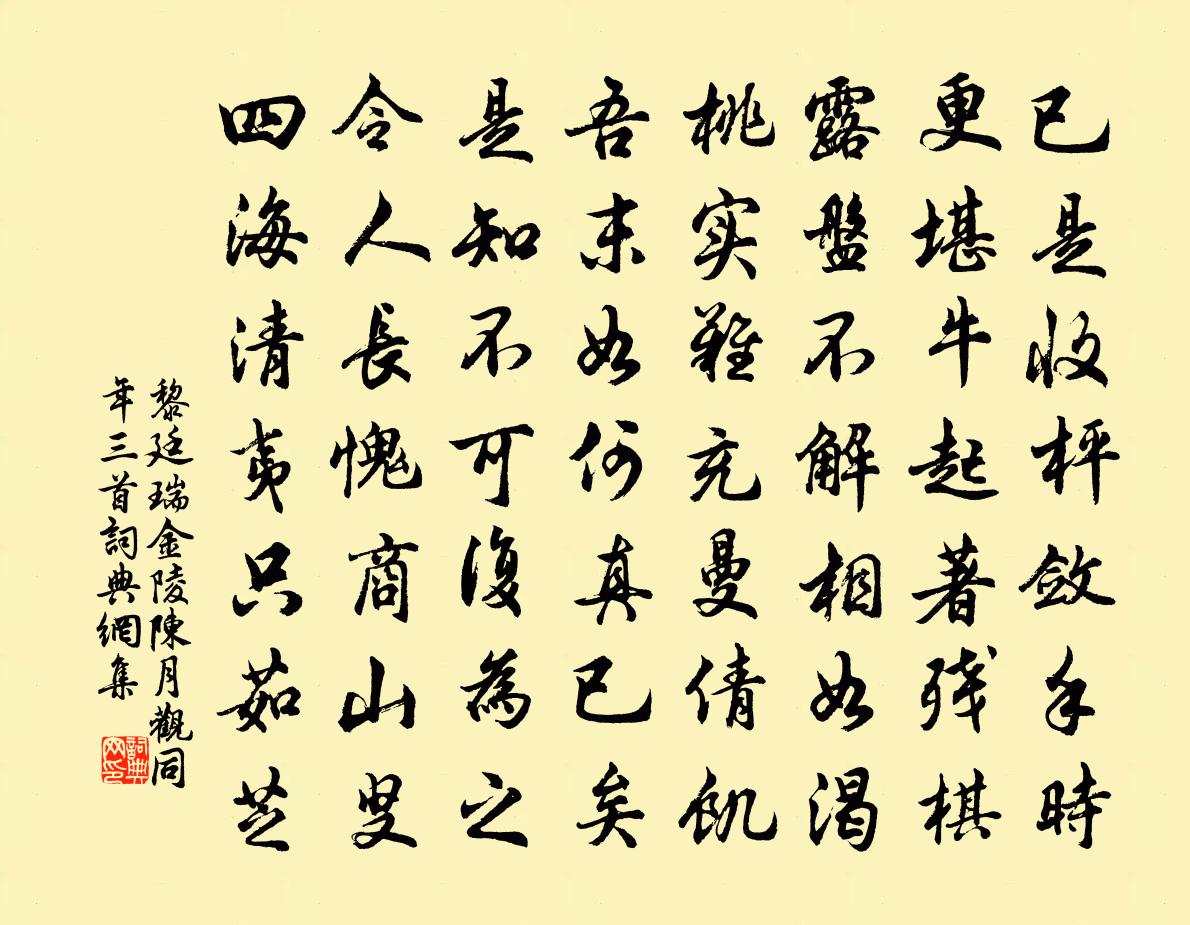 已是收枰斂手時
更堪牛起著残棋
露盤不解相如渴
桃实難充曼倩飢
吾末如何真已矣
是知不可復為之
令人長愧商山叟
四海清夷只茹芝
黎廷瑞金陵陳月觀同
年三首詞典網集
詞典
网印